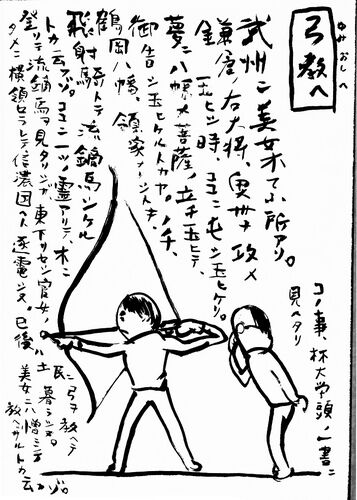 弓教へ
ゆみおしへ
武州ニ美女木てふ所アリ。
鎌倉右大将、奥州攻メ
玉ヒシ時、ココニ屯シ玉ヒケリ。
夢ニ八幡大菩薩ノ立チ玉ヒテ、
御告シ玉ヒケルトカヤ。ノチ、
鶴岡八幡ノ領家ナーントキ
飛射騎ントテ流鏑馬シケル
トカ云フゾ。ココニ一ツノ霊アリテ、木ニ
登リテ流鏑馬ヲ見タリシガ、東下リセシ官女ノ。
タメニ横領セラレテ信濃国ヘト逐電シヌ。已後ハ土民ニ弓ヲ教ヘテ
暮ラシヌ。
美女ニハ憎ミテ
教ヘザルトカ云フゾ。
コノ事、林大学頭ノ書ニ
見ヘタリ